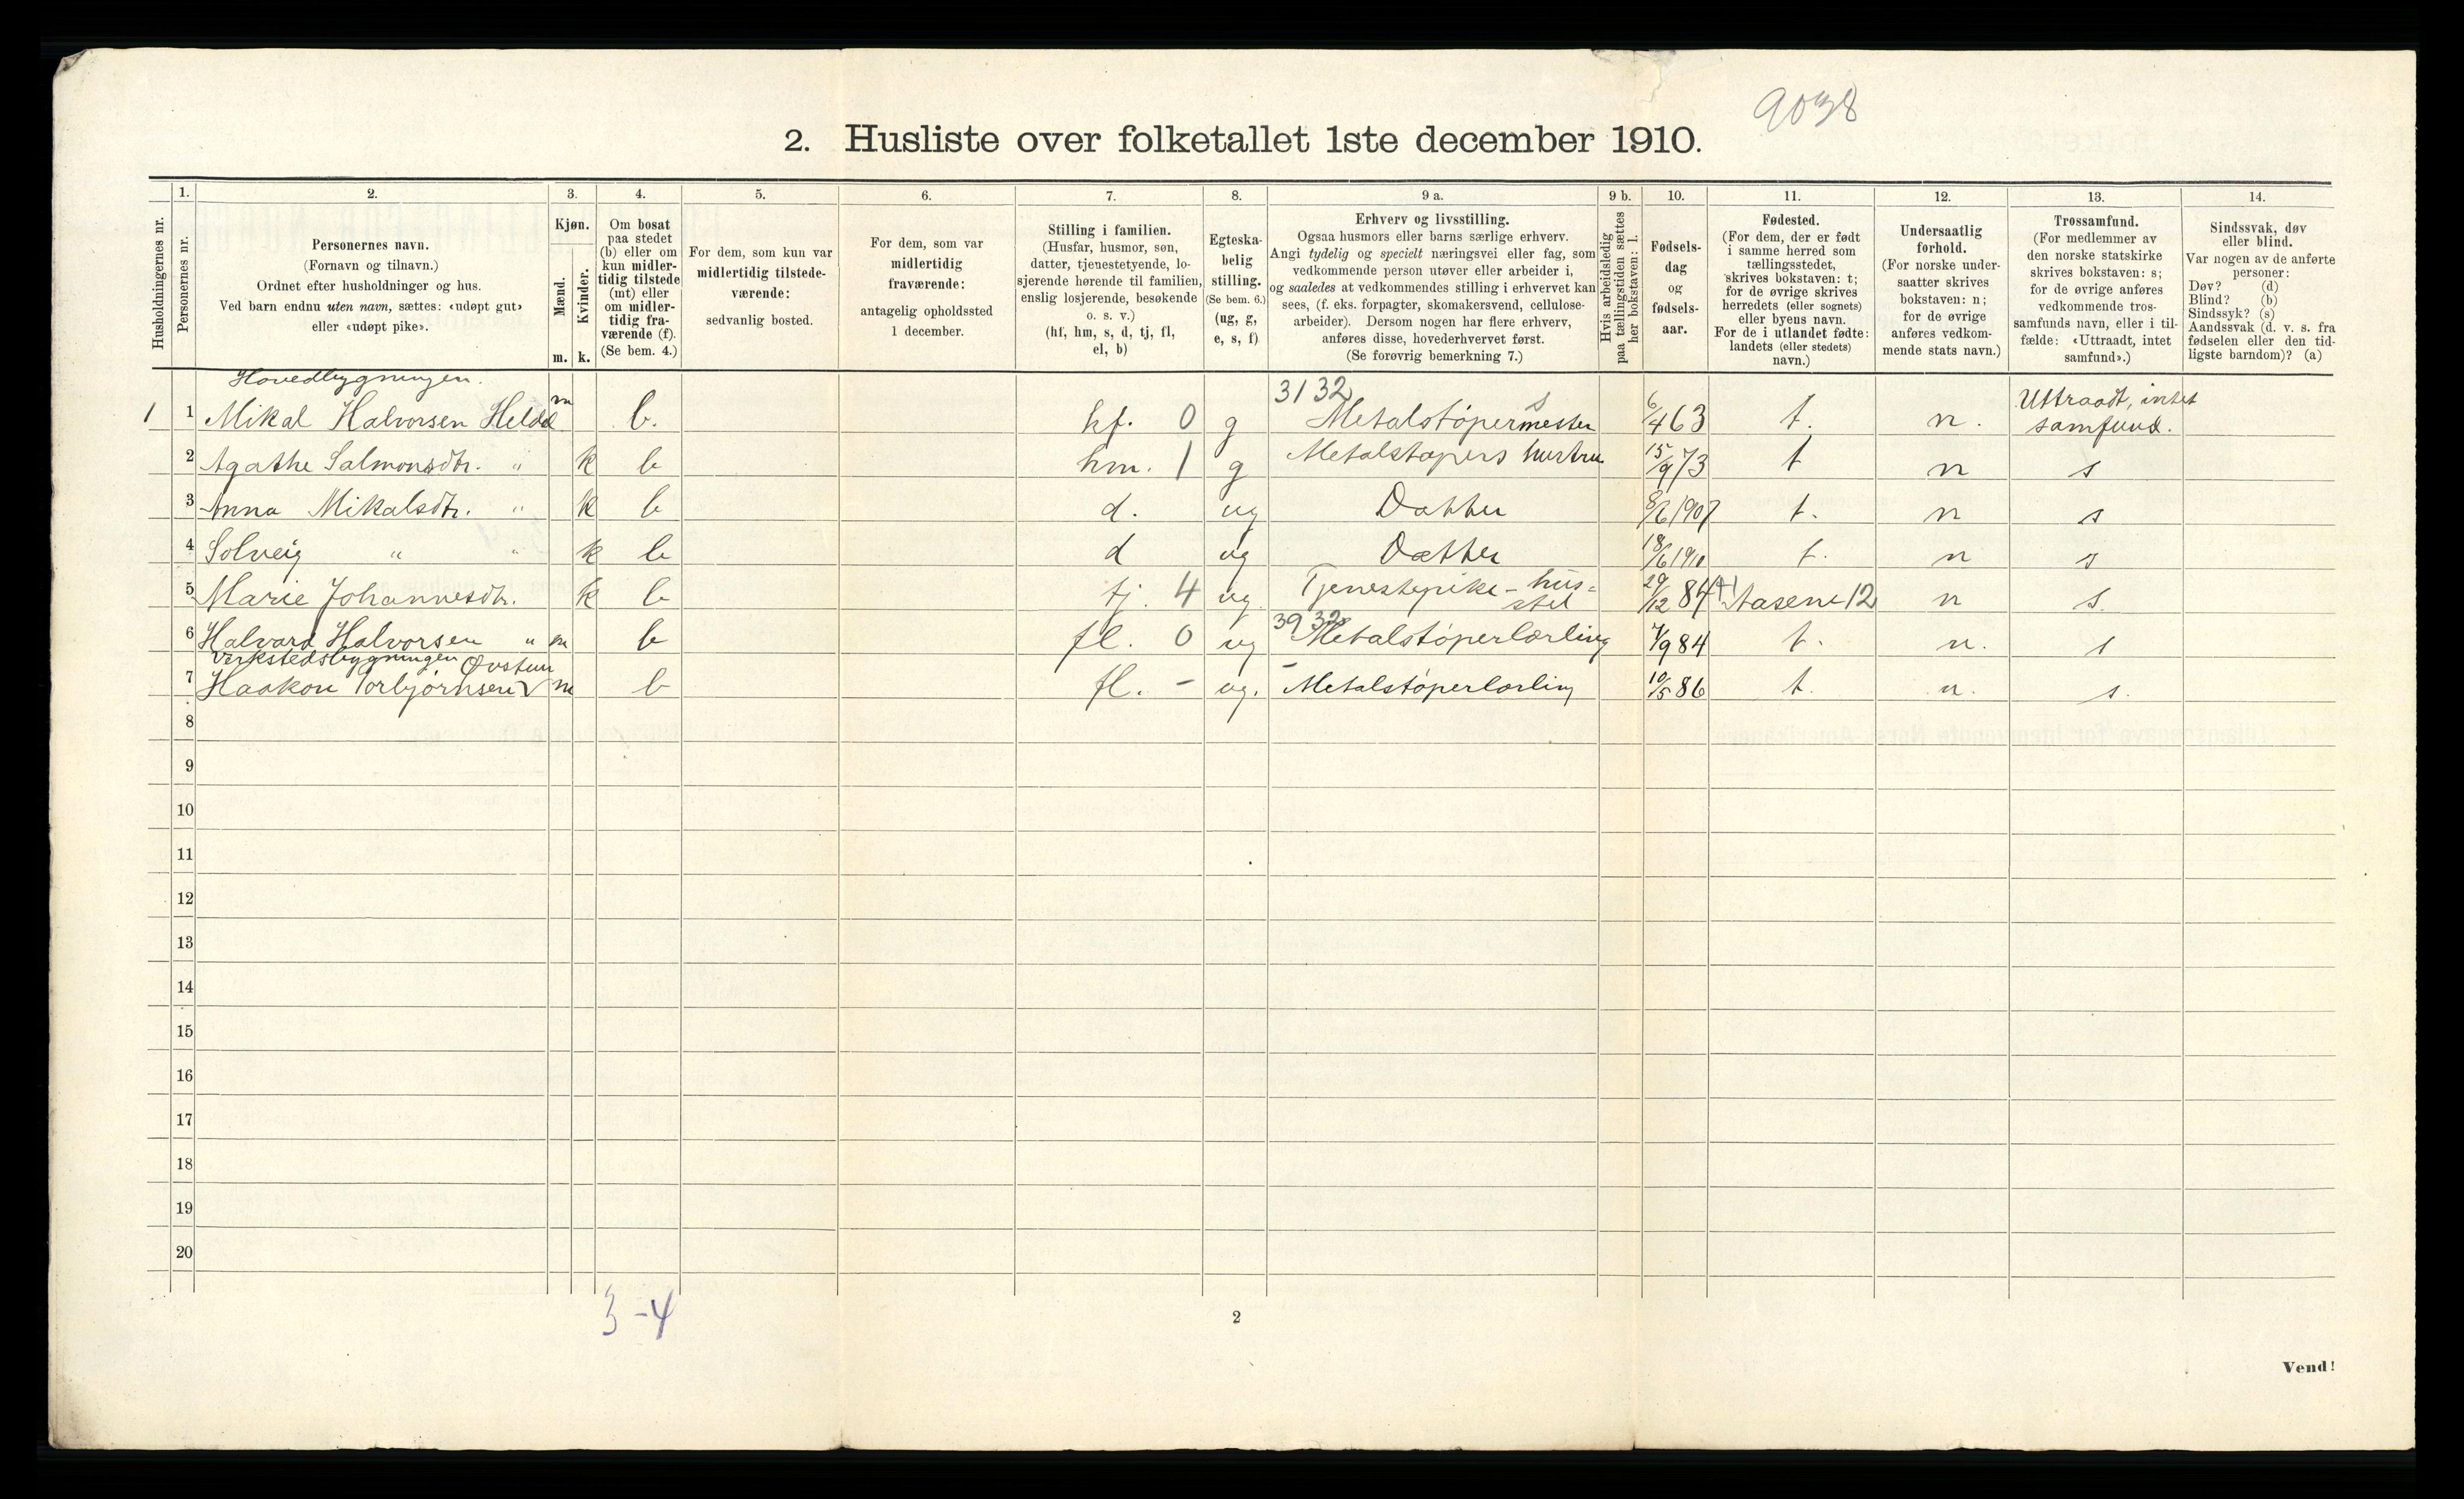 9038
2. Husliste over folketallet 1ste december 1910.
Husholdningernes nr.
1.
Personernes nr.
2.
Personernes navn.
(Fornavn og tilnavn.)
Ordnet efter husholdninger og hus.
Ved barn endnu uten navn, sættes: «udøpt gut»
eller «udøpt pike».
3.
Kjøn.
Mænd.
Kvinder.
m. k.
4.
Om bosat
paa stedet
(b) eller om
kun midler-
tidig tilstede
(mt) eller
om midler-
tidig fra-
værende (f).
(Se bem. 4.)
5.
For dem, som kun var
midlertidig tilstede-
værende:
sedvanlig bosted.
6.
For dem, som var
midlertidig
fraværende:
antagelig opholdssted
1 december.
7.
Stilling i familien.
(Husfar, husmor, søn,
datter, tjenestetyende, lo-
sjerende hørende til familien,
enslig losjerende, besøkende
o. s. v.)
(hf, hm, s, d, tj, fl,
el, b)
8.
Egteska-
belig
stilling.
(Se bem. 6.)
(ug, g,
e, s, f)
9 a.
Erhverv og livsstilling.
Ogsaa husmors eller barns særlige erhverv.
Angi tydelig og specielt næringsvei eller fag, som
vedkommende person utøver eller arbeider i,
og saaledes at vedkommendes stilling i erhvervet kan
sees, (f. eks. forpagter, skomakersvend, cellulose-
arbeider). Dersom nogen har flere erhverv,
anføres disse, hovederhvervet først.
(Se forøvrig bemerkning 7.)
9 b.
Hvis arbeidsledig
paa tællingstiden sættes
her bokstaven: l.
10.
Fødsels-
dag
og
fødsels-
aar.
11.
Fødested.
(For dem, der er født
i samme herred som
tællingsstedet,
skrives bokstaven: t;
for de øvrige skrives
herredets (eller sognets)
eller byens navn.
For de i utlandet fødte:
landets (eller stedets)
navn.)
12.
Undersaatlig
forhold.
(For norske under-
saatter skrives
bokstaven: n;
for de øvrige
anføres vedkom-
mende stats navn.)
13.
Trossamfund.
(For medlemmer av
den norske statskirke
skrives bokstaven: s;
for de øvrige anføres
vedkommende tros-
samfunds navn, eller i til-
fælde: «Uttraadt, intet
samfund».)
14.
Sindssvak, døv
eller blind.
Var nogen av de anførte
personer:
Døv? (d)
Blind? (b)
Sindssyk? (s)
Aandssvak (d. v. s. fra
fødselen eller den tid-
ligste barndom)? (a)
Hovedbygningen.
3132 s Uttraadt, intet
1 1 Mikal Halvorsen Heldal m b. hf. 0 g Metalstøpermester 6/4 63 t. n. samfund.
2 Agathe Salmonsdtr. " k b hm. 1 g Metalstøpers hustru 15/9 73 t n s
3 Anna Mikalsdtr. " k b d. ug Datter 8/6 1907 t. n s
4 Solveig " " k b d ug Datter 18/6 1910 t. n s
5 Marie Johannesdtr. k b tj. 4 ug Tjenestepike - hus=
stel 29/12 84 Aasene 12 n s.
3932
6 Halvard Halvorsen " m b fl. 0 ug Metalstøperlærling 7/9 84 t. n. s
Verkstedsbygningen Øvstun
7 Haakon Torbjørnsen m b fl. - ug. Metalstøperlærling 10/5 86 t. n. s.
8
9
10
11
12
13
14
15
16
17
18
19
20
3-4
2
Vend!